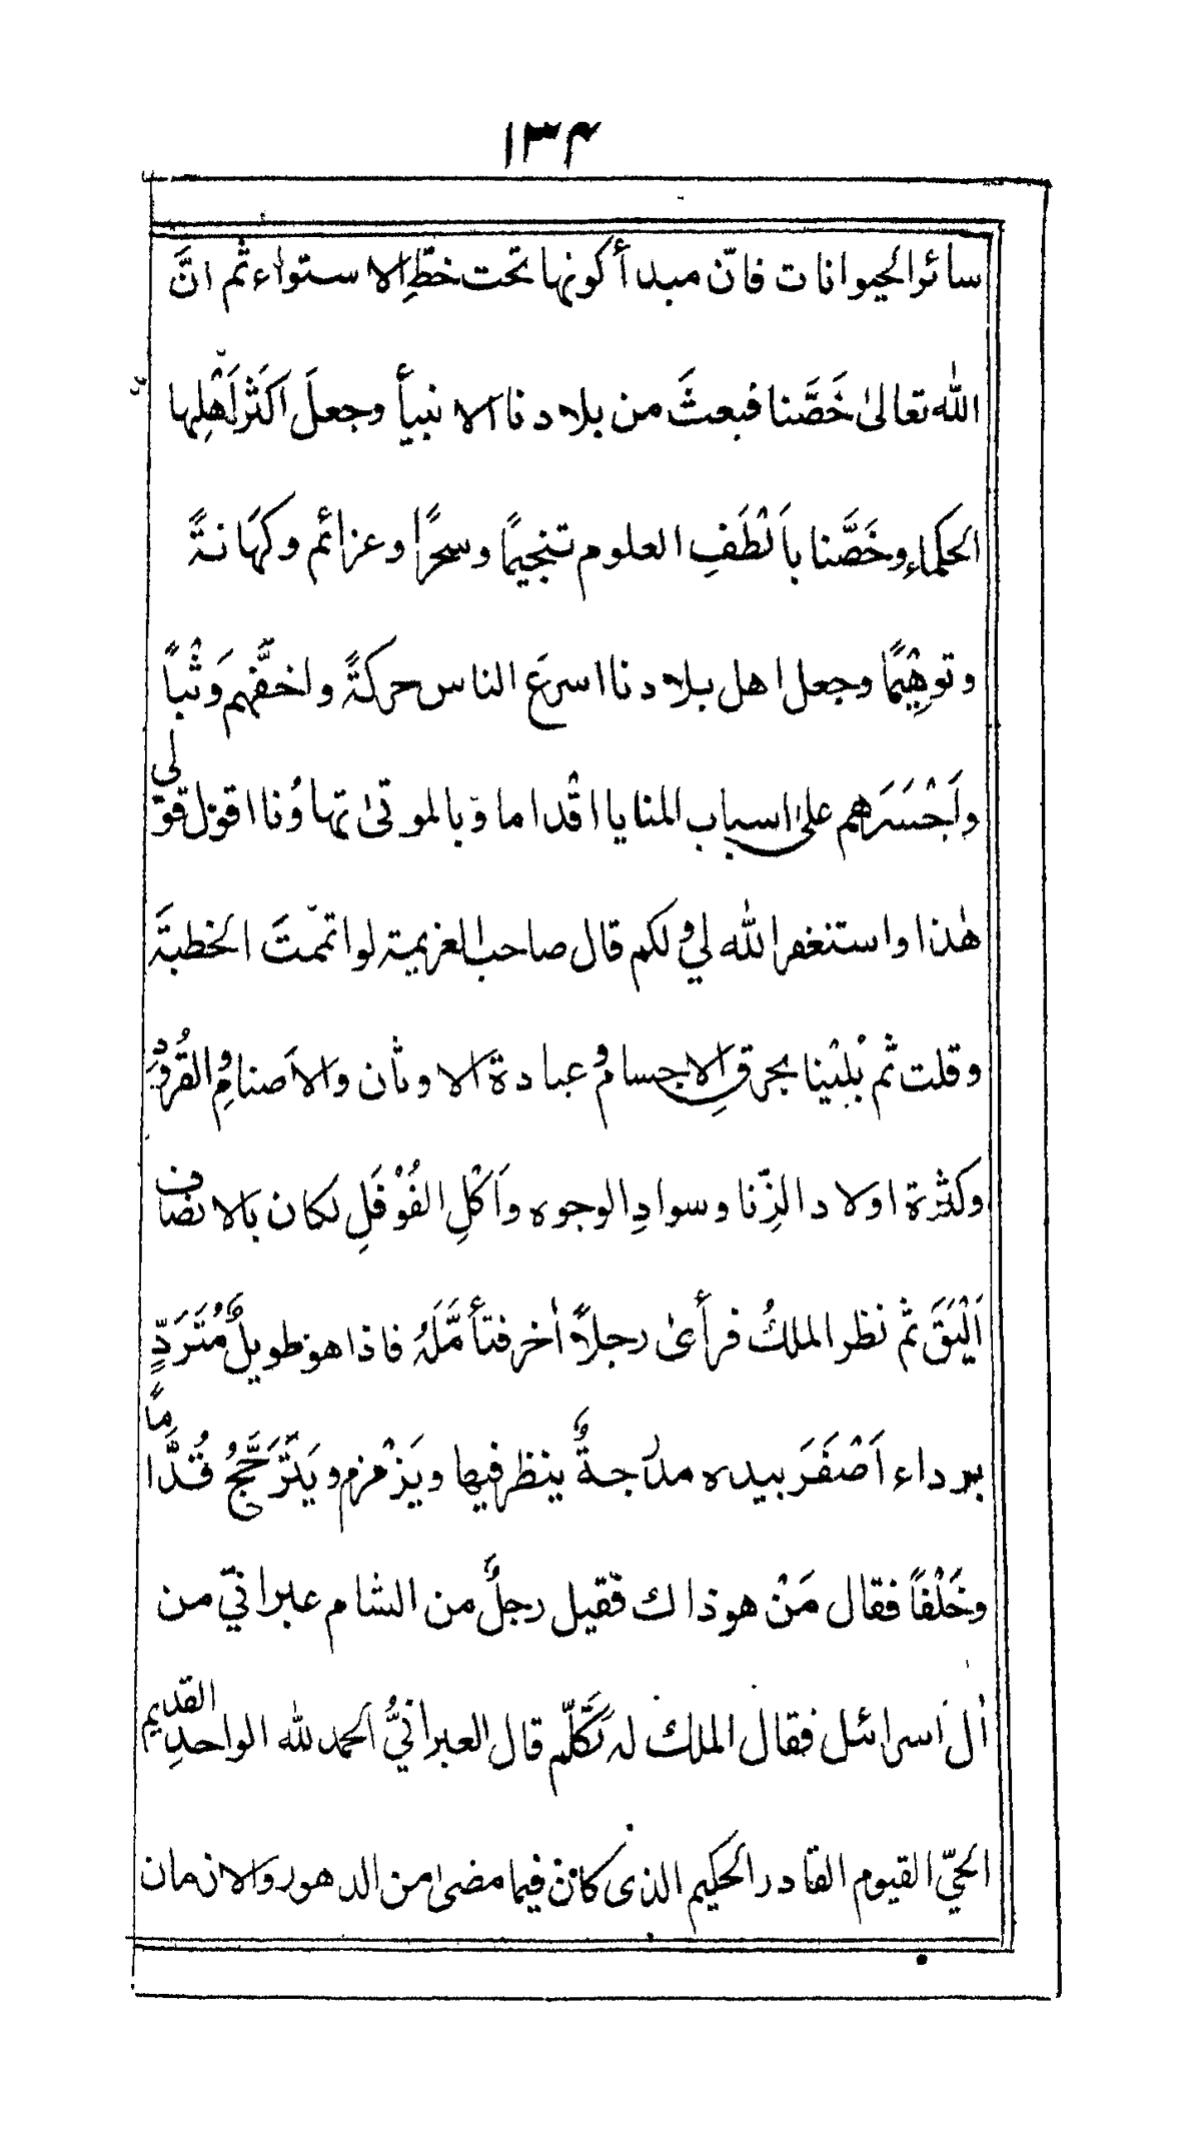 ١٣۴
سائر الحيوانات فانّ مبدأ كونها تحت خطِّ الاستواء ثم انَّ
الله تعالىٰ خَصَّنا فبعثَ من بلادنا الانبيأ وجعلَ اكَثَر اَهْلِها
الحكماءِ وخَصَّنا باَلْطَفِ العلوم تنجيمًا وسحرًا وعزائم وكهَانةً
وتوهِيْمًا وجعل اهل بلادنا اسرعَ الناس حركةً واخفَّهم وَثْباً
واَجْسَرَهم علىٰ اسباب المنايا اقْداما وَبالموتىٰ تهاوُنا اقول قوَلي
هٰذا واستنغفر الله لي ولكم قال صاحب العزيمة لو اتممّتَ الخطبتَہ
وقلت ثم بُلِيْنا بحرقِ الاجسام و عبادة الاوثان والاَصنامِ و القُرود
وكثرة اولاد الزِّنا وسوادِ الوجوه واَكْلِ الفُوْفَلِ لكان بالانصاف
اَلْيَقَ ثم نظر الملكُ فرأىٰ رجلاً اٰخر فتأمَّلَهُ فاذا هو طويلٌ مُتَرَدٍّ
برداء اَصْفَرَ بيده مدرَجةٌ ينظر فيها ويَزْمزم ويَتَرَجَّحُ قُدَّامًا
وخَلْفاً فقال مَنْ هو ذاك فقيل رجلٌ من الشام عبرانيّ من
اٰل اسرائيل فقال الملك له تَكَلَّم قال العبرانيُّ اَلحمد لله الواحدِ القديم
الحيّ القيوم القادر الحكيم الذى كان فيما مضىٰ من الدهور والازمان